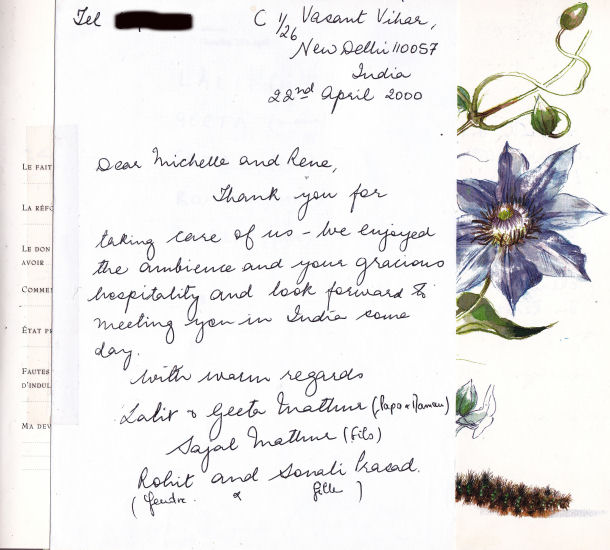 Tel
C 1/26 Vasant Vihar,
New Delhi 110057
India
22nd April 2000
Dear Michelle and Rene,
Thank you for
taking care of us - We enjoyed
the ambience and your gracious
hospitality and look forward to
meeting you in India some
day.
With warm regards
Lalit & Geeta Mathur (Papa & Maman)
Sajal Mathur (fils)
Rohit and Sonali Prasad.
(Gendre & fille)
LE FAIT
LA RÉFO
LE DON
AVOIR
COMME
ÉTAT PR
FAUTES
D'INDUL
MA DEV